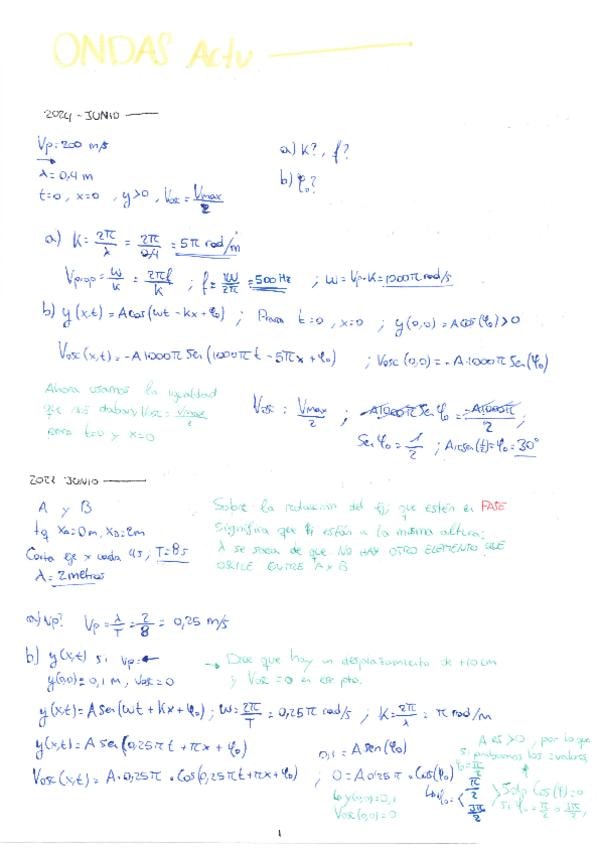 ONDAS Actu
2024 - JUNIO
Vp = 200 m/s
λ = 0,4 m
t=0, x=0, y>0, Vosc = Vmax/2
a) K?, f?
b) φ₀?
a) K = 2π/λ = 2π/0,4 = 5π rad/m
Vprop = w/k = 2πf/k ; f = w/2π = 500 Hz ; w = Vp·K = 1000π rad/s
b) y(x,t) = A cos(wt - kx + φ₀) ; Para t=0, x=0 ; y(0,0) = A cos(φ₀) > 0
Vosc(x,t) = -A 1000π Sen(1000πt - 5πx + φ₀) ; Vosc(0,0) = -A·1000π Sen(φ₀)
Ahora usamos la igualdad
que nos daban, Vosc = Vmax/2
para t=0 y x=0
Vosc : Vmax/2 ; -A1000π Sen φ₀ = -A1000π/2 ;
Sen φ₀ = 1/2 ; Arcsen(1/2) = φ₀ = 30°
JUNIO
A y B
tq xA=0m, xB=2m
Corta eje x cada 4s, T=8s
λ = 2 metros
Sobre la redaccion del ej, que estén en FASE
Significa que están a la misma altura;
λ se saca de que NO HAY OTRO ELEMENTO QUE
OSCILE ENTRE A y B
a) Vp? Vp = λ/T = 2/8 = 0,25 m/s
b) y(x,t) si Vp = ←
y(0,0) = 0,1 m, Vosc = 0
→ Dice que hay un desplazamiento de +10 cm
y Vosc = 0 en ese pto.
y(x,t) = A sen(wt + kx + φ₀) ; w = 2π/T = 0,25π rad/s ; K = 2π/λ = π rad/m
y(x,t) = A sen(0,25πt + πx + φ₀)
0,1 = A sen(φ₀)
Vosc(x,t) = A·0,25π · Cos(0,25πt + πx + φ₀) ; 0 = A 0,25π · Cos(φ₀)
y(0,0) = 0,1
Vosc(0,0) = 0
A es >0, por lo que
si probamos los 2 valores,
φ₀ = π/2
φ₀ = < π/2
3π/2
Cos(φ) = 0
si φ₀ = π/2 o 3π/2,
1